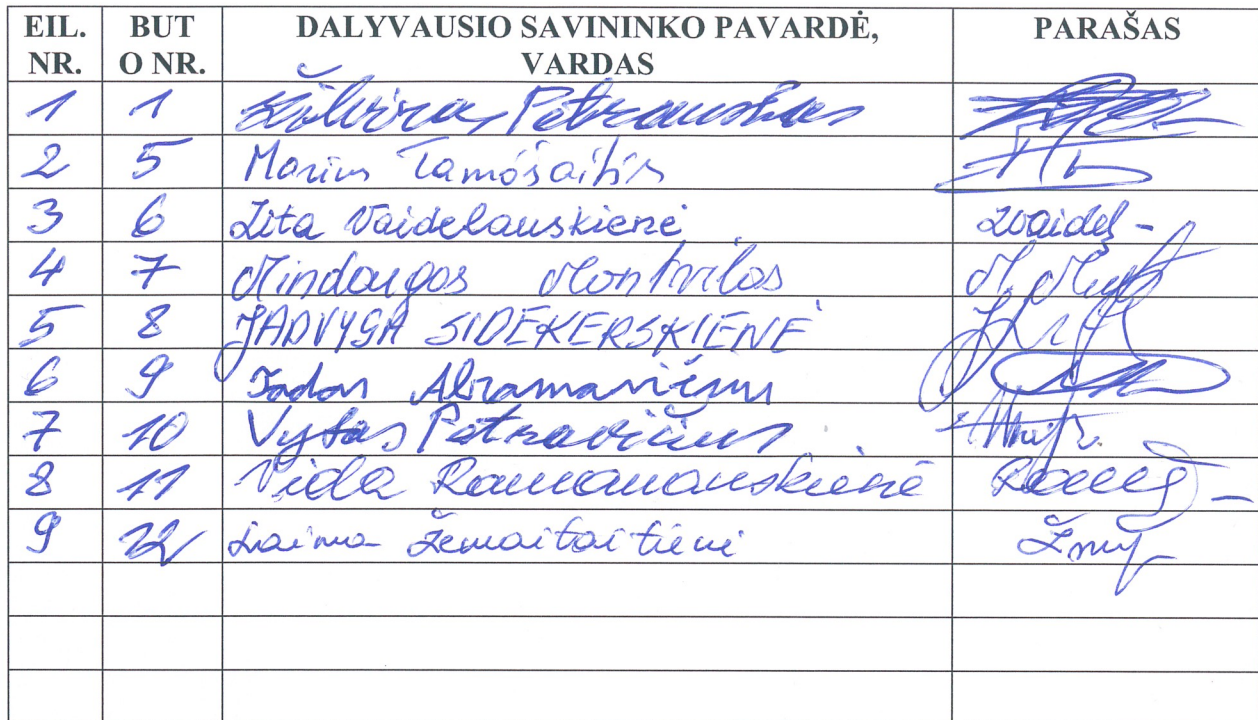 EIL. NR. BUTO NR. DALYVAUSIO SAVININKO PAVARDĖ, VARDAS PARAŠAS
1 1 Petrauskas
2 5 Marius Tamošaitis
3 6 Zita Vaidelauskienė
4 7 Mindaugas Montvilas
5 8 JADVYGA SIDEKERSKIENĖ
6 9 Tadas Abramavičius
7 10 Vytas Petravičius
8 11 Vida Ramanauskienė
9 12 Laima Žemaitaitienė